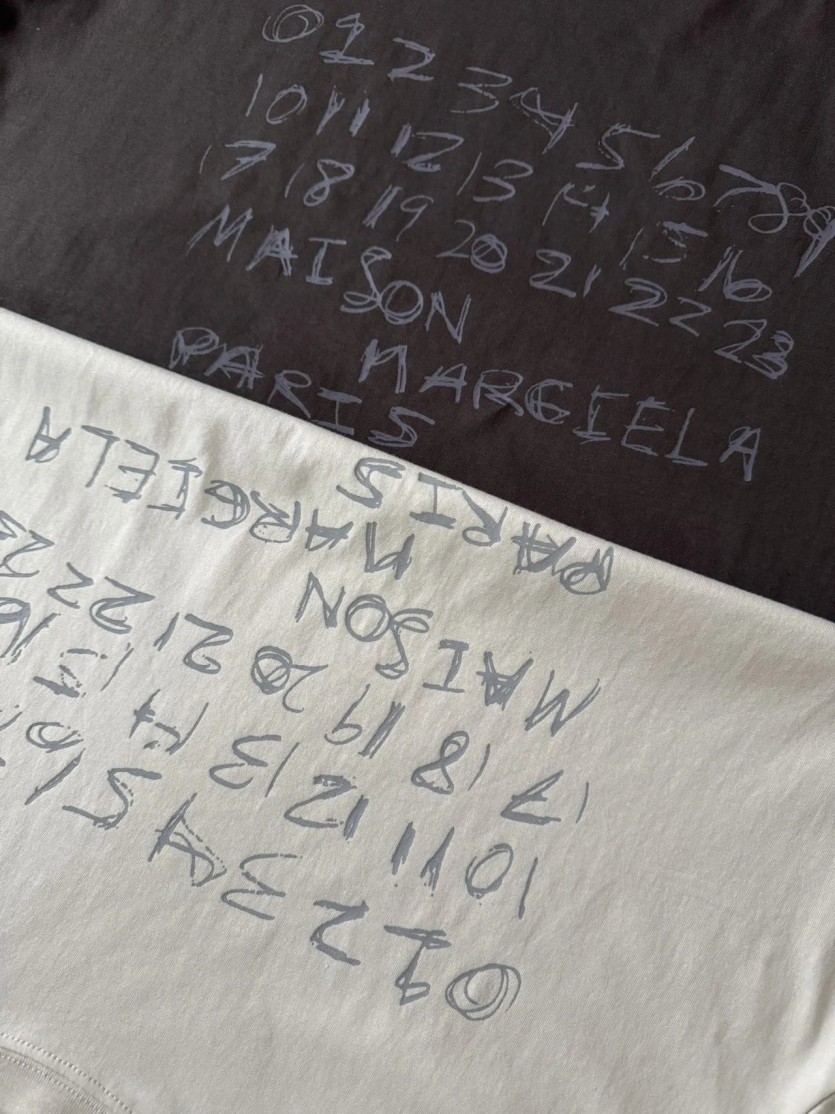 0 1 2 3 4 5 6 7 8 9
10 11 12 13 14 15 16
17 18 19 20 21 22 23
MAISON
MARGIELA
PARIS
PARIS
MARGIELA
MAISON
17 18 19 20 21 22 23
10 11 12 13 14 15 16
0 1 2 3 4 5 6